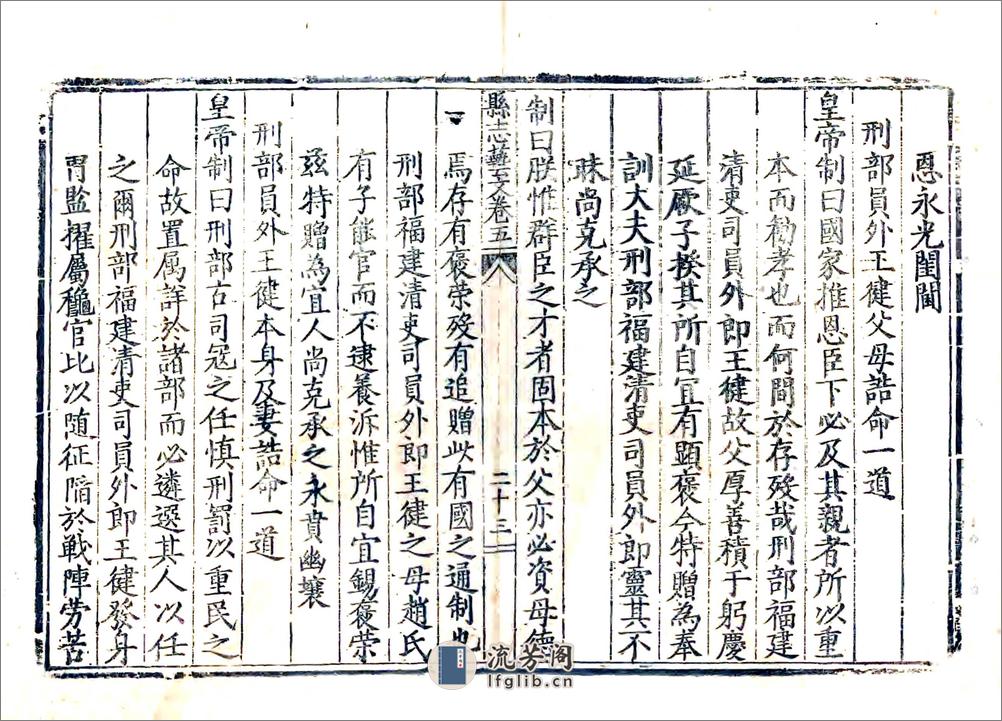 恩永光閨閫
刑部員外王健父母誥命一道
皇帝制曰國家推恩臣下必及其親者所以重
本而勸孝也而何間於存歿哉刑部福建
清吏司員外郎王健故父厚善積于躬慶
延厥子揆其所自宜有顯褒今特贈為奉
訓大夫刑部福建清吏司員外郎靈其不
昧尚克承之
制曰朕惟群臣之才者固本於父亦必資母德
縣志藝文卷五 二十三
焉存有褒榮歿有追贈此有國之通制也
刑部福建清吏司員外郎王健之母趙氏
有子能官而不逮養泝惟所自宜錫褒榮
玆特贈為宜人尚克承之永賁幽壤
刑部員外王健本身及妻誥命一道
皇帝制曰刑部古司冦之任慎刑罰以重民之
命故置属詳於諸部而必遴選其人以任
之爾刑部福建清吏司員外郎王健發身
胄監擢屬官比以随征䧟於戰陣勞苦
流芳阁
lfglib.cn